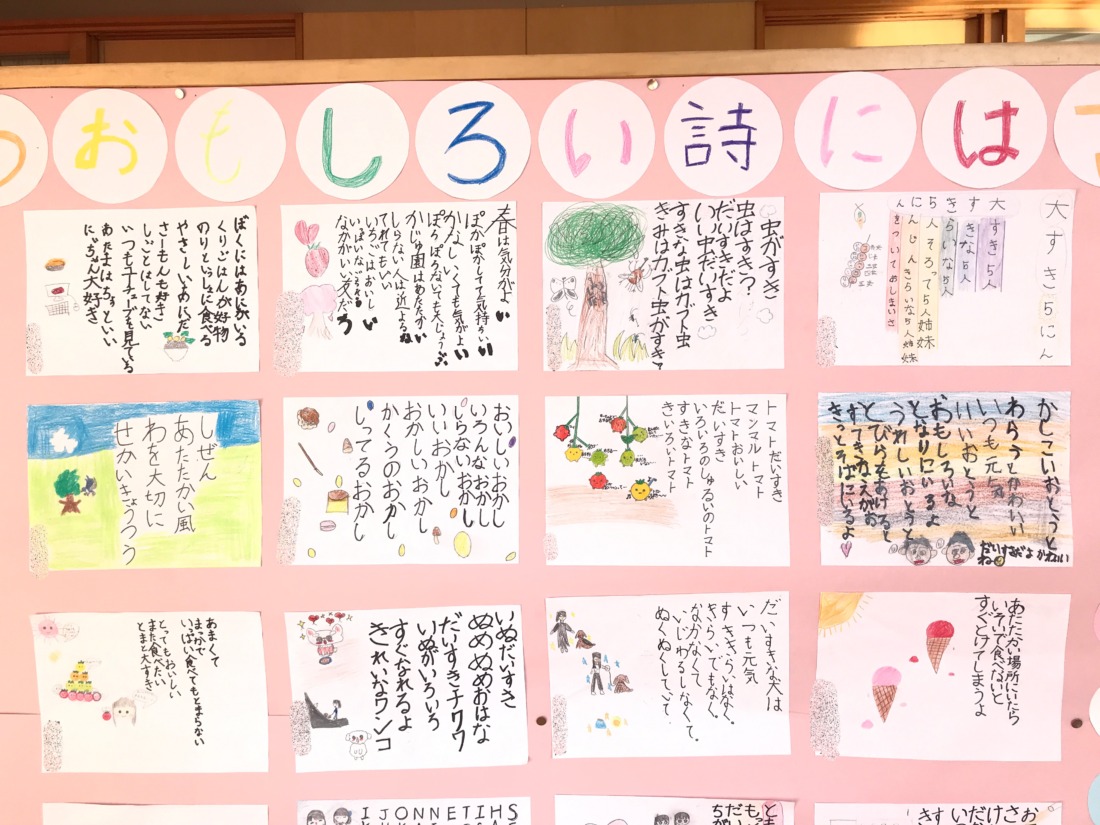 おもしろい詩には
ぼくにはあにがいる
くりごはんが好物
のりといっしょに食べる
やさしいのにだ
さーもんも好き
しごとはしてない
いつもユーチューブを見ている
あたまはちょっといい
にいちゃん大好き
春は気分がよい
ぽかぽかしてて気持ちいい
かなしくても気分がよい
しらない人は近よるな
つれてってもいい
いちごはおいしい
虫がすき
虫はすき？
だいすきだよ
いい虫だいすき
すきな虫はカブト虫
きみはカブト虫がすき
大すき5にん
大すき5人
すきな5人
きらいな5人
5人そろって5人姉妹
にんじんきらいな5人姉妹
しぜん
あたたかい風
わを大切に
せかいきょうつう
おいしいおかし
いろんなおかし
しらないおかし
いいおかし
おかしいおかし
かくうのおかし
しってるおかし
トマトだいすき
マンマルトマト
トマトおいしい
だいすき
いろいろのしゅるいのトマト
すきなトマト
きいろいトマト
かしこいおとうと
わらうとかわいい
いつも元気
いいおとうと
おもしろいな
となりにいるよ
うれしいおとうと
とびらをあけると
すてきなえがお
きっとそばにいるよ
だいすきだよ かわいい
ね
あまくて
まっかで
いっぱい食べてもとまらない
とってもおいしい
また食べたい
とまと大すき
いぬだいすき
ぬめぬめおはな
だいすきチワワ
いぬがいろいろ
すぐなれるよ
きれいなワンコ
だいすきな犬は
いつも元気
すききらいはなく、
きらいでもなく、
なかなくて、
いじわるしなくて、
ぬくぬくしていて。
あたたかい場所にいたら
いそいで食べないと
すぐとけてしまうよ
IJONNETIHS